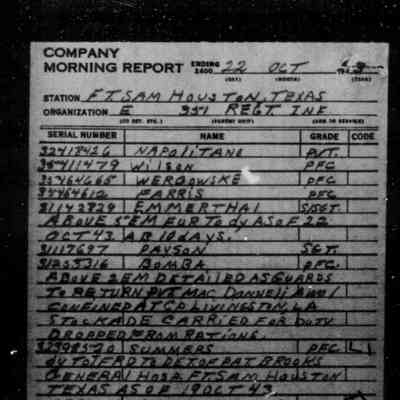 COMPANY
MORNING REPORT ENDING 2400 22 OCT
(DAY) (MONTH) (YEAR)
STATION FT. SAM HOUSTON, TEXAS
ORGANIZATION E 351 REGT. INF.
(PARENT UNIT) (ARM OR SERVICE)
SERIAL NUMBER NAME GRADE CODE
32418426 NAPOLITANO PVT.
35411479 Wilson PFC
35464665 WERGOWSKE PFC
35464612 FARRIS PFC
31142829 EMMERTHAL S/SGT.
ABOVE 5 EM FUR TO dy AS OF 22
OCT 43 AR 10 DAYS.
31117697 PAYSON SGT.
31255316 BOMBA PFC.
ABOVE 2 EM DETAILED AS GUARDS
TO RETURN PVT MAC DONNELL
CONFINED AT CO LIVINGSTON, LA
STOCKADE CARRIED FOR DUTY
DROPPED FROM RATIONS.
SUMMERS PFC L
dy TO TFRD TO DET OF PAT BROOKS
GENERAL HOSP. FT. SAM HOUSTON
TEXAS AS OF 19 OCT 43